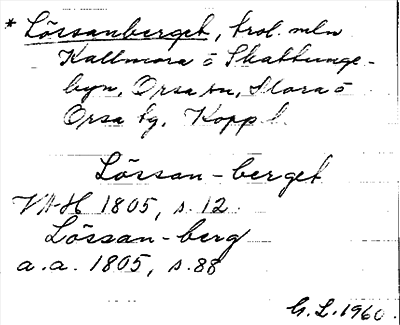 * Lössanberget, trol. mln
Kallmora o Skattunge-
byn, Orsa sn, Mora o
Orsa tg, Kopp l.
Lössan-berget
VAH 1805, s. 12
Lössan-berg
a.a. 1805, s. 88
G. L. 1960.